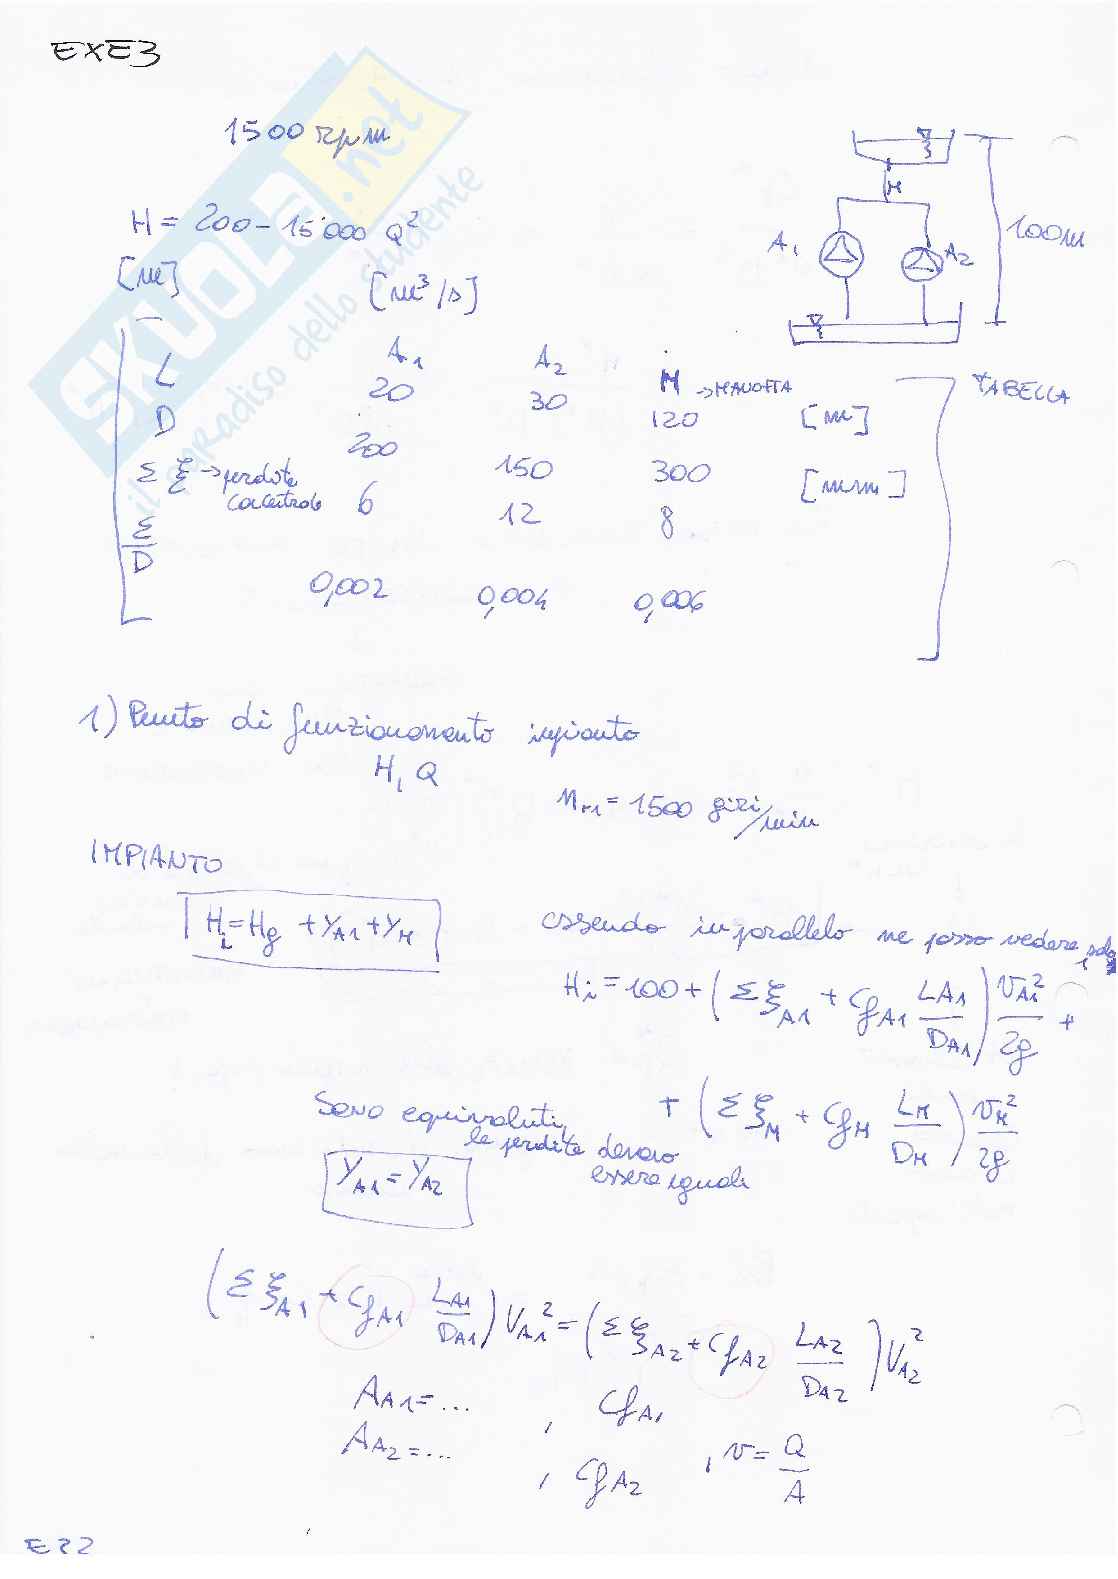 EXE3
1500 rpm
H = 200 - 15'000 Q²
[m] [m³/s]
A₁ A₂ 100m
A₁ A₂ M → MANDATA
L 20 30 120 [m] TABELLA
D 200 150 300 [mm]
Σξ → perdite concentrate 6 12 8
ε/D 0,002 0,004 0,006
1) Punto di funzionamento impianto
H, Q
n_{r1} = 1500 giri/min
IMPIANTO
H_i = H_g + Y_{A1} + Y_M essendo in parallelo ne posso vedere 1 solo
H_i = 100 + (Σξ_{A1} + Cf_{A1} L_{A1}/D_{A1}) v_{A1}²/2g +
+ (Σξ_M + Cf_M L_M/D_M) v_M²/2g
Sono equivalenti, le perdite devono essere uguali
Y_{A1} = Y_{A2}
(Σξ_{A1} + Cf_{A1} L_{A1}/D_{A1}) V_{A1}² = (Σξ_{A2} + Cf_{A2} L_{A2}/D_{A2}) V_{A2}²
A_{A1} = ... , Cf_{A1}
A_{A2} = ... , Cf_{A2} , v = Q/A
E22
SKUOLA.net
il paradiso dello studente